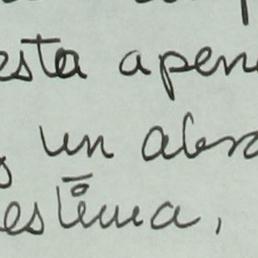 esta apen
un abra
estima,